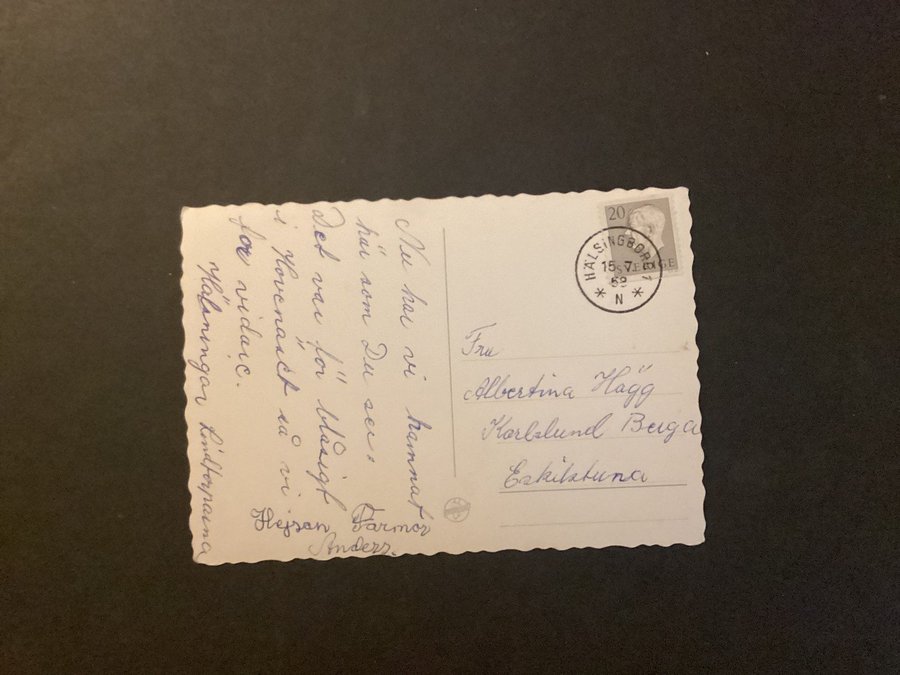 Nu har vi hamnat
här som Du ser.
Det var för blåsigt
i Hovenäset så vi
for vidare.
Hälsningar Lindtorparna
Hejsan Farmor
Anders.
20
SVERIGE
HÄLSINGBORG 1
15.7.
58
N
Fru
Albertina Hägg
Karlslund Berga
Eskilstuna